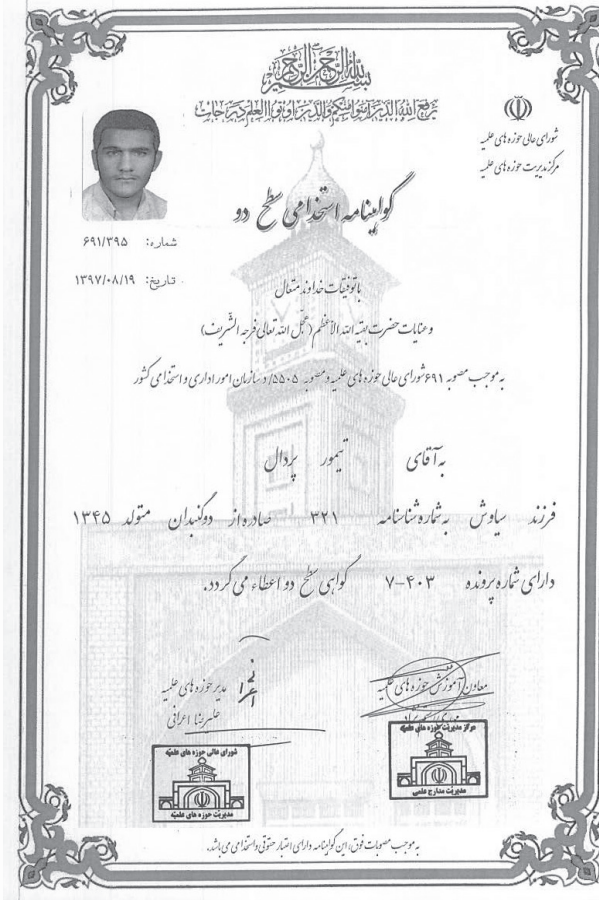 بسم الله الرحمن الرحیم
یرفع الله الذین آمنوا منکم والذین اوتوا العلم درجات
شورای عالی حوزه های علمیه
مرکز مدیریت حوزه های علمیه
گواهینامه استخدامی سطح دو
شماره: ۶۹۱/۳۹۵
تاریخ: ۱۳۹۷/۰۸/۱۹
با توفیقات خداوند متعال
و عنایات حضرت بقیه الله الأعظم (عجّل الله تعالی فرجه الشّریف)
به موجب مصوبه ۶۹۱ شورای عالی حوزه های علمیه و مصوبه ۵۵۰۵/د سازمان امور اداری و استخدامی کشور
به آقای تیمور پردال
فرزند سیاوش به شماره شناسنامه ۳۲۱ صادره از دوگنبدان متولد ۱۳۴۵
دارای شماره پرونده ۷-۴۰۳ گواهی سطح دو اعطاء می گردد.
معاون آموزش حوزه های علمیه
مدیر حوزه های علمیه
علیرضا اعرافی
مرکز مدیریت حوزه های علمیّه
مدیریت مدارج علمی
شورای عالی حوزه های علمیّه
مدیریت حوزه های علمیّه
به موجب مصوبات فوق، این گواهینامه دارای اعتبار حقوقی و استخدامی می باشد.